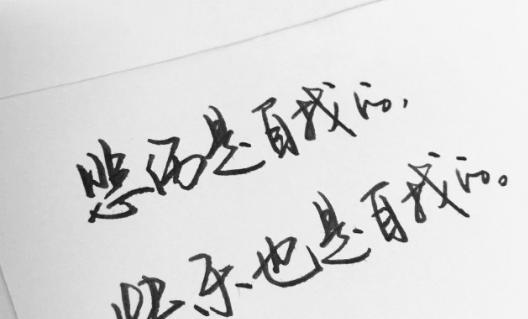 悲伤是自找的,
快乐也是自找的。